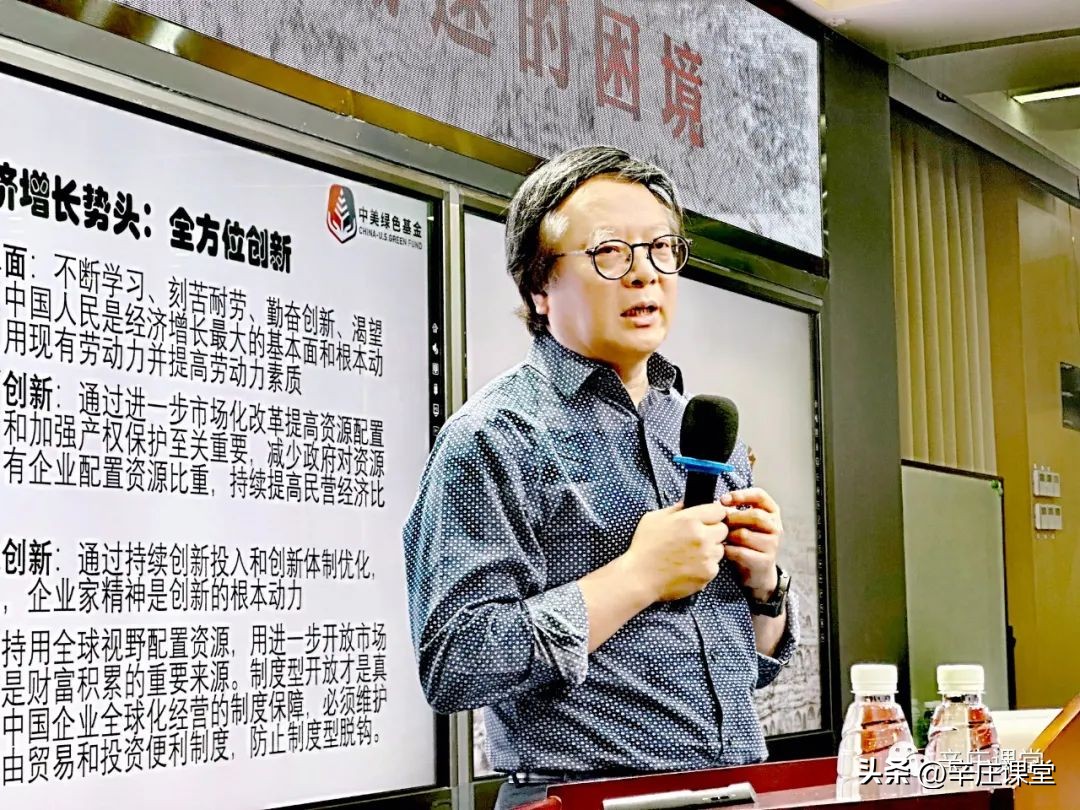 的困境
济增长势头：全方位创新
中美绿色基金
CHINA-U.S. GREEN FUND
面：不断学习、刻苦耐劳、勤奋创新、渴望
中国人民是经济增长最大的基本面和根本动
用现有劳动力并提高劳动力素质
创新：通过进一步市场化改革提高资源配置
和加强产权保护至关重要，减少政府对资源
有企业配置资源比重，持续提高民营经济比
创新：通过持续创新投入和创新体制优化，
，企业家精神是创新的根本动力
持用全球视野配置资源，用进一步开放市场
是财富积累的重要来源。制度型开放才是真
中国企业全球化经营的制度保障，必须维护
由贸易和投资便利制度，防止制度型脱钩。
辛庄课堂
头条 @辛庄课堂